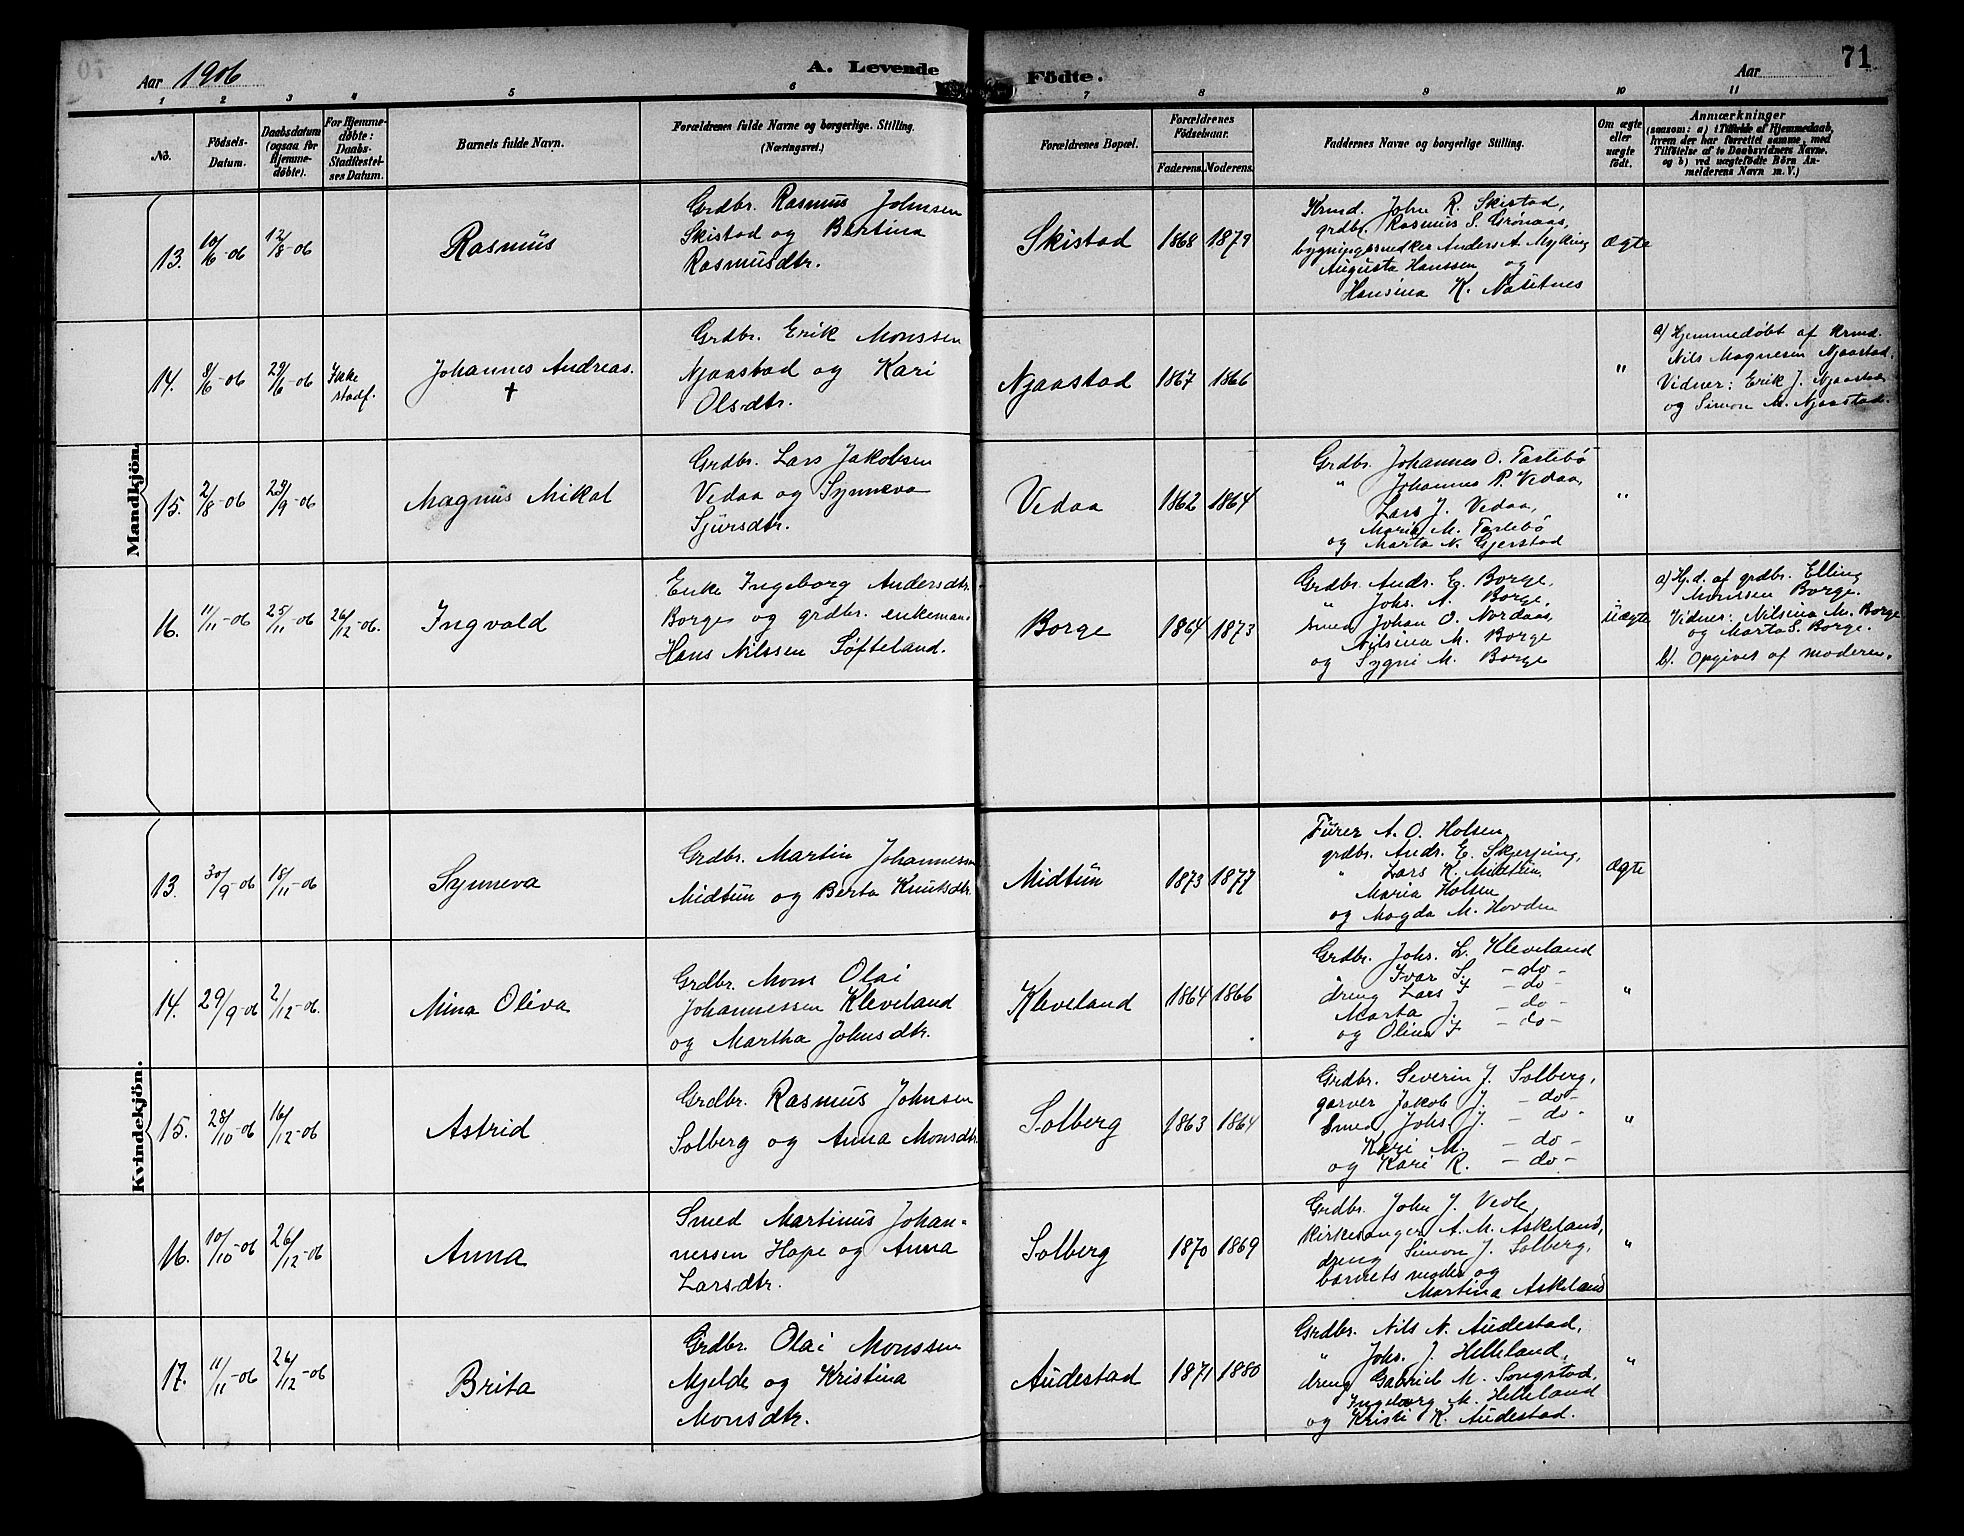 Aar 1906
A. Levende Födte.
Aar
71
1 2 3 4 5 6 7 8 9 10 11
No.
Födsels-Datum.
Daabsdatum (ogsaa for Hjemme-døbte).
For Hjemme-døbte: Daabs-Stadfæstel-ses Datum.
Barnets fulde Navn.
Forældrenes fulde Navne og borgerlige Stilling.
(Næringsvei.)
Forældrenes Bopæl.
Forældrenes Födselsaar.
Faderens. Moderens.
Faddernes Navne og borgerlige Stilling.
Om ægte eller uægte födt.
Anmærkninger
(saasom: a) i Tilfælde af Hjemmedaab,
hvem der har forrettet samme, med
Tilföielse af to Daabsvidners Navne.
og b) ved uægtefödte Börn An-
melderens Navn m. V.)
Mandkjön.
13. 10/6-06 12/8-06
Rasmus
Grdbr. Rasmus Johnsen
Skistad og Bertina
Rasmusdtr.
Skistad 1868 1879
Krmd. John R. Skistad,
grdbr. Rasmus S. Grönaas,
bygningssnedker Anders A. Myking
Augusta Hanssen og
Hansina K. Nasetnes
Ægte
14. 8/6-06 29/6-06 Ikke stadf.
Johannes Andreas.
†
Grdbr. Erik Monssen
Njaastad og Kari
Olsdtr.
Njaastad 1867 1866
"
a) Hjemmedøbt af krmd.
Nils Magnesen Njaastad.
Vidner: Erik J. Njaastad
og Simon M. Njaastad.
15. 2/8-06 23/9-06
Magnus Mikal
Grdbr. Lars Jakobsen
Vedaa og Synneva
Sjursdtr.
Vedaa 1862 1864
Grdbr. Johannes O. Tastebø
" Johannes P. Vedaa,
Lars J. Vedaa,
Maria M. Tastebø
og Marta N. Gjerstad
"
16. 11/11-06 25/11-06 26/12-06.
Ingvald
Enke Ingeborg Andersdtr.
Borge og grdbr. enkemand
Hans Nilssen Søfteland.
Borge 1864 1873
Grdbr. Andr. E. Borge,
" Johs. A. Borge,
smed Johan O. Nordaas,
Nilsina M. Borge
og Sygni M. Borge
uægte
a) Hj.d. af grdbr. Elling
Monssen Borge.
Vidner: Nilsina M. Borge
og Marta S. Borge.
b). Opgivet af moderen.
Kvindekjön.
13. 30/9-06 18/11-06
Synneva
Grdbr. Martin Johannessen
Midtun og Berta Knutsdtr.
Midtun 1873 1877
Furer A. O. Holsen,
grdbr. Andr. E. Skjerping,
" Lars K. Midttun,
Maria Holsen
og Magda M. Hovden
Ægte
14. 29/9-06 2/12-06.
Mina Oliva
Grdbr. Mons Olai
Johannessen Kleveland
og Martha Johnsdtr.
Kleveland 1864 1866
Grdbr. Johs. L. Kleveland
" Ivar S. - do -
dreng Lars I - do -
Marta J. - do -
og Olina I - do -
"
15. 28/10-06 16/12-06
Astrid
Grdbr. Rasmus Johnsen
Solberg og Anna Monsdtr.
Solberg 1863 1864
Grdbr. Severin J. Solberg,
garver Jakob J. - do -
Smed Johs J. - do -
Kari M. - do -
og Kari R. - do -
"
16. 10/10-06 26/12-06
Anna
Smed Martinus Johan-
nessen Hope og Anna
Larsdtr.
Solberg 1870 1869
Grdbr. John J. Vedle,
kirkesanger A. M. Askeland,
dreng Simon J. Solberg,
barnets moder og
Martina Askeland
"
17. 11/11-06 26/12-06
Brita
Grdbr. Olai Monssen
Mjelde og Kristina
Monsdtr.
Audestad 1871 1880
Grdbr. Nils N. Audestad,
" Johs. J. Helleland,
dreng Gabriel M. Songstad,
Ingeborg M. Helleland
og Kristi K. Audestad.
"